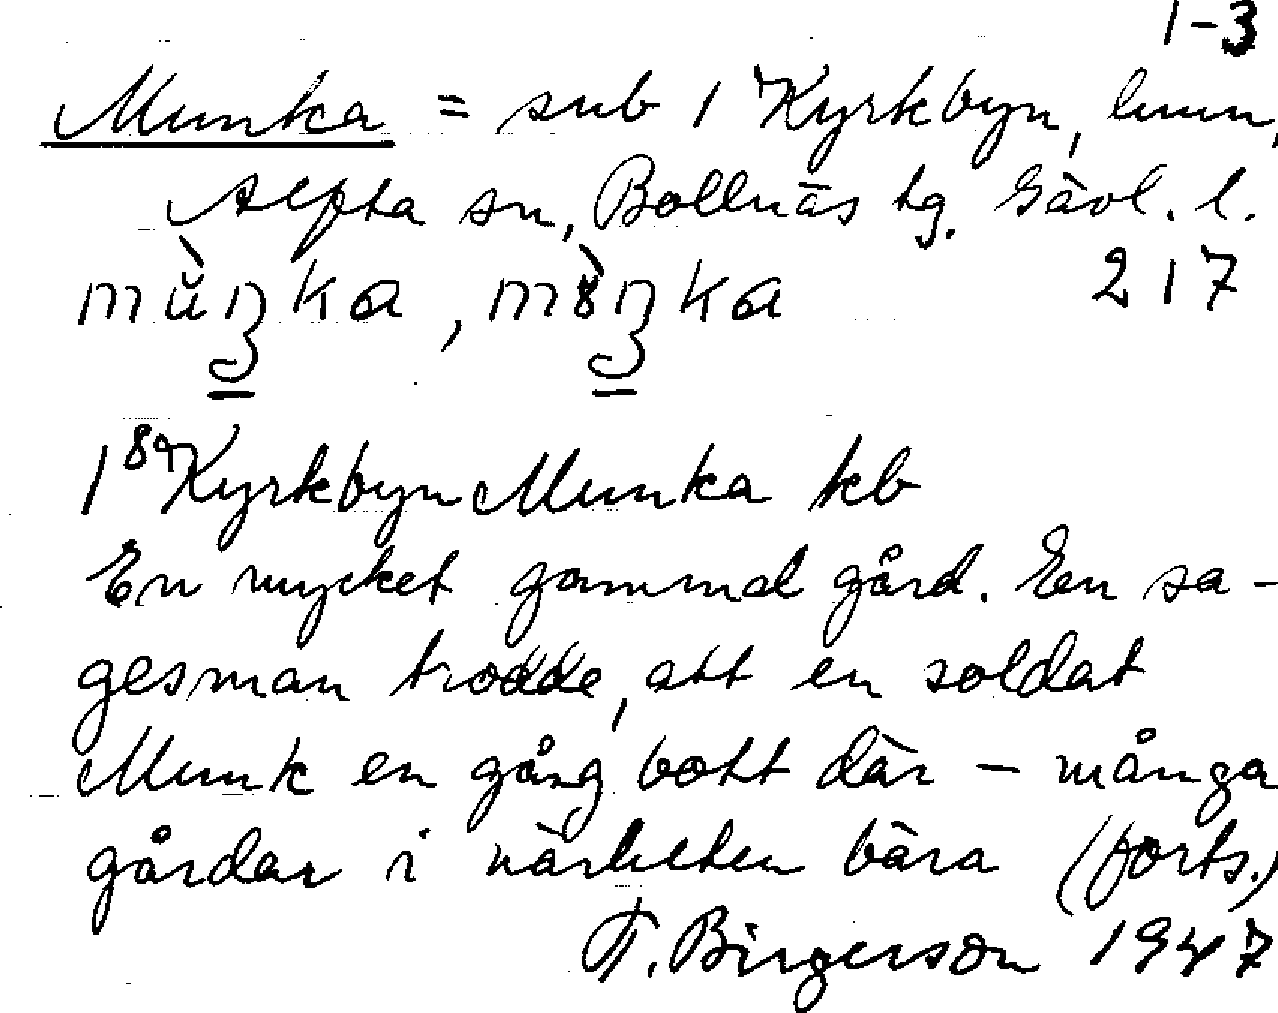 1-3
Munka = sub 1 Kyrkbyn, hmn,
Alfta sn, Bollnäs tg. Gävl. l.
mùŋka, mòŋka 217
1⁸⁹ Kyrkbyn Munka kb
En mycket gammal gård. En sa-
gesman trodde, att en soldat
Munk en gång bott där - många
gårdar i närheten bära (forts.)
T. Birgerson 1947